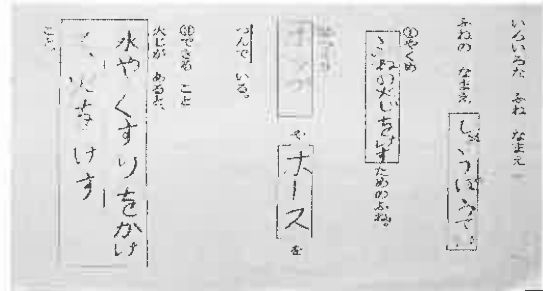 いろいろな ふね なまえ
ふねの なまえ しょうぼうてい
①やくめ
ふねの火じをけすためのふね。
ポンプ や ホース を
つんで いる。
③できる こと
火じが あると、
水や くすりをかけ
て、火を けす
こと。